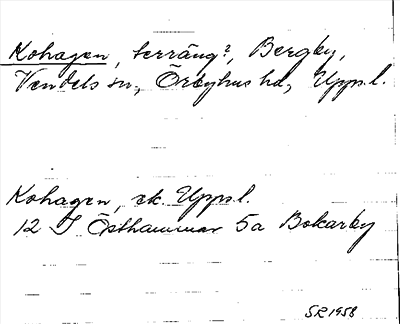 Kohagen, terräng?, Bergby,
Vendels sn, Örbyhus hd, Uppl.
Kohagen, ek. Uppsl.
12 I Östhammar 5a Bokarby
SR 1958